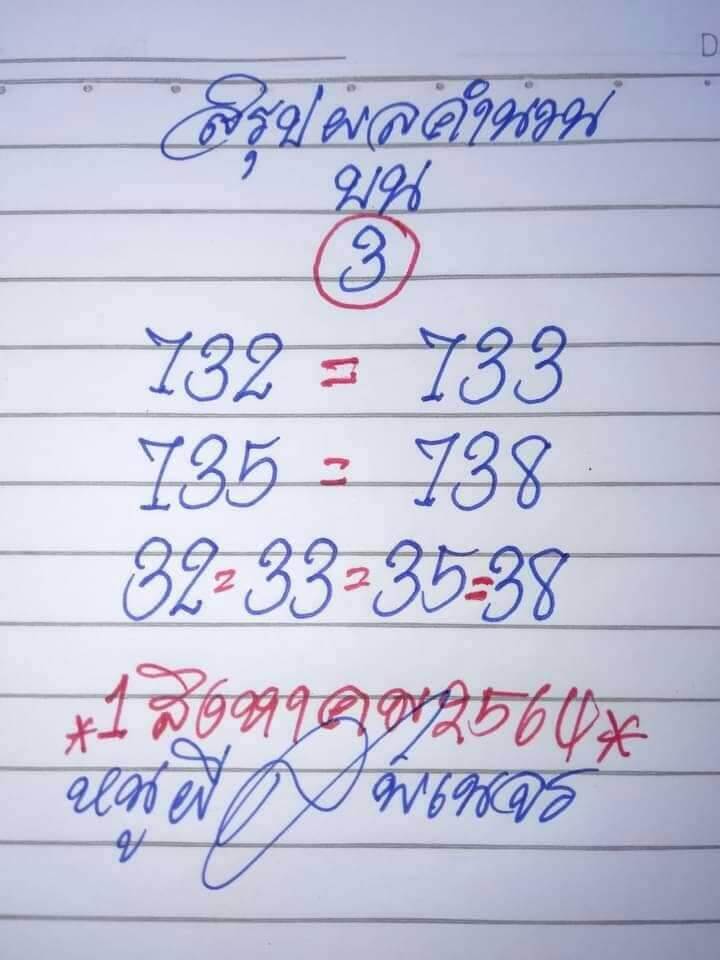 D
สรุปผลคำนวน
บน
3
732 = 733
735 = 738
32 = 33 = 35 = 38
*1 สิงหาคม 2564*
หนูผี พเนจร